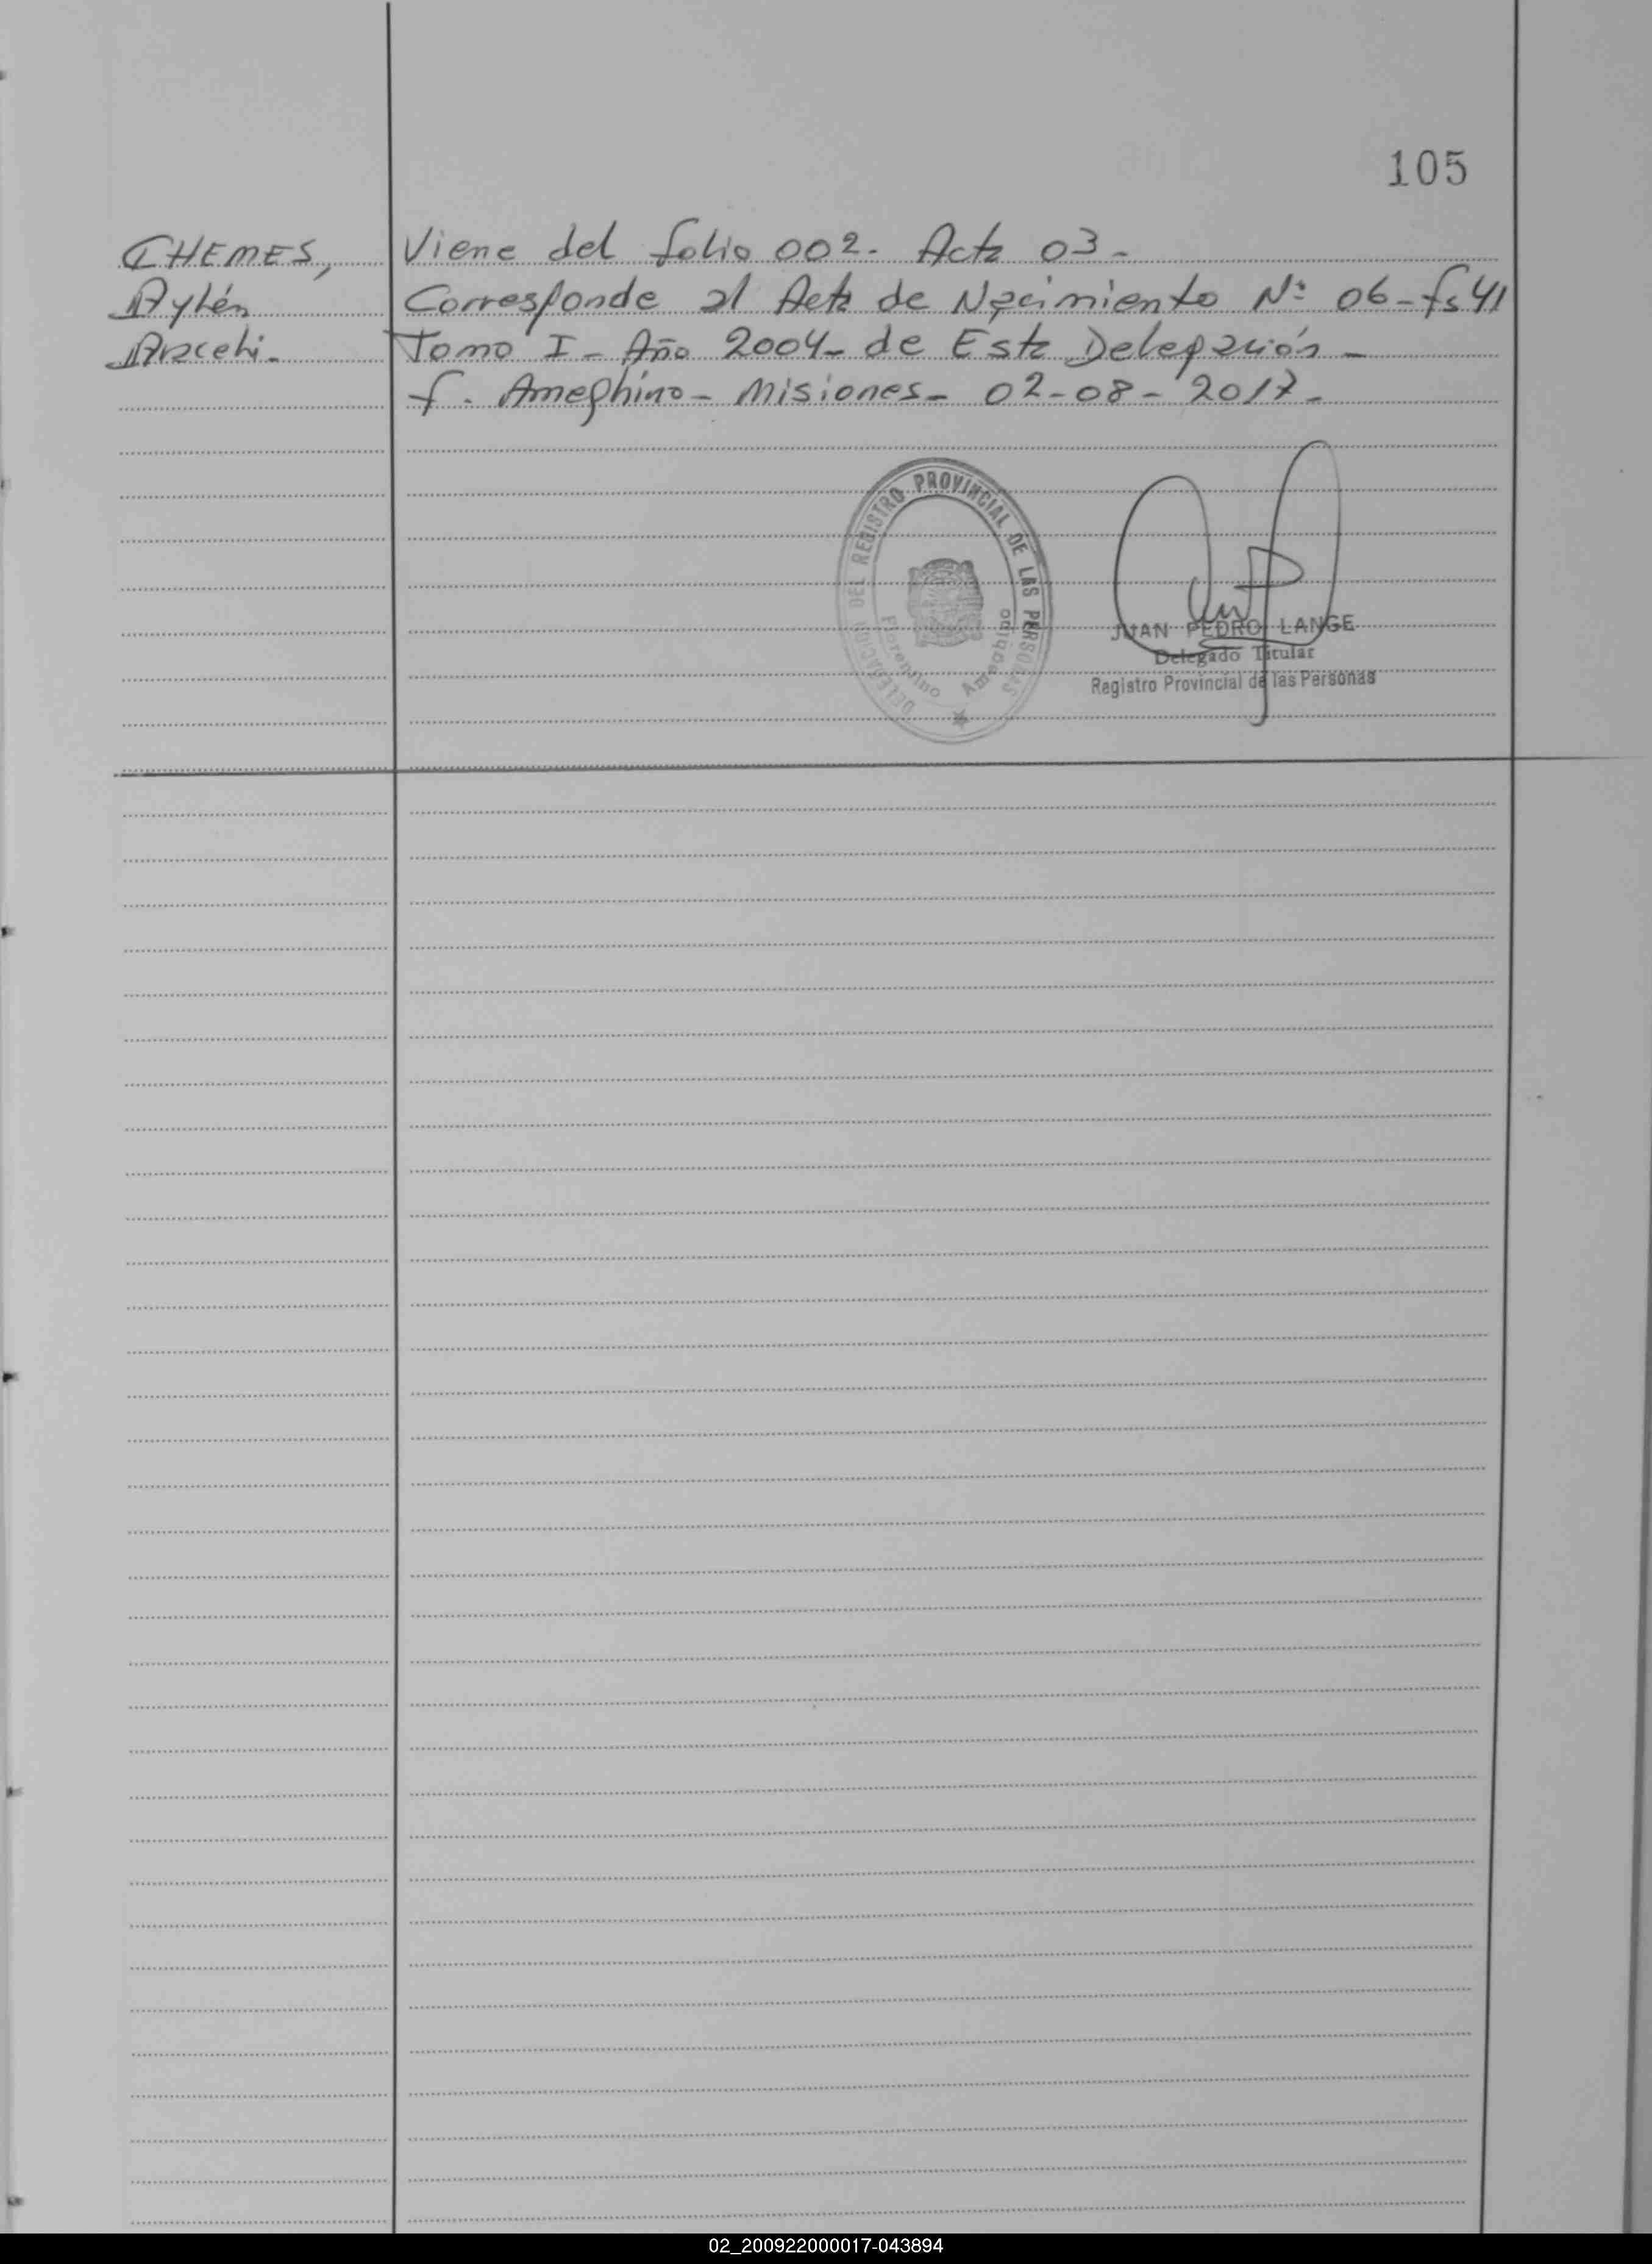 105
CHEMES,
Aylén
Araceli.
Viene del folio 002. Acta 03-
Corresponde al Acta de Nacimiento Nº 06-fs 41
Tomo I - Año 2004- de Esta Delegación -
f. Ameghino- Misiones- 02-08-2017-
DELEGACION DEL REGISTRO PROVINCIAL DE LAS PERSONAS
Florentino Ameghino
JUAN PEDRO LANGE
Delegado Titular
Registro Provincial de las Personas
02_200922000017-043894